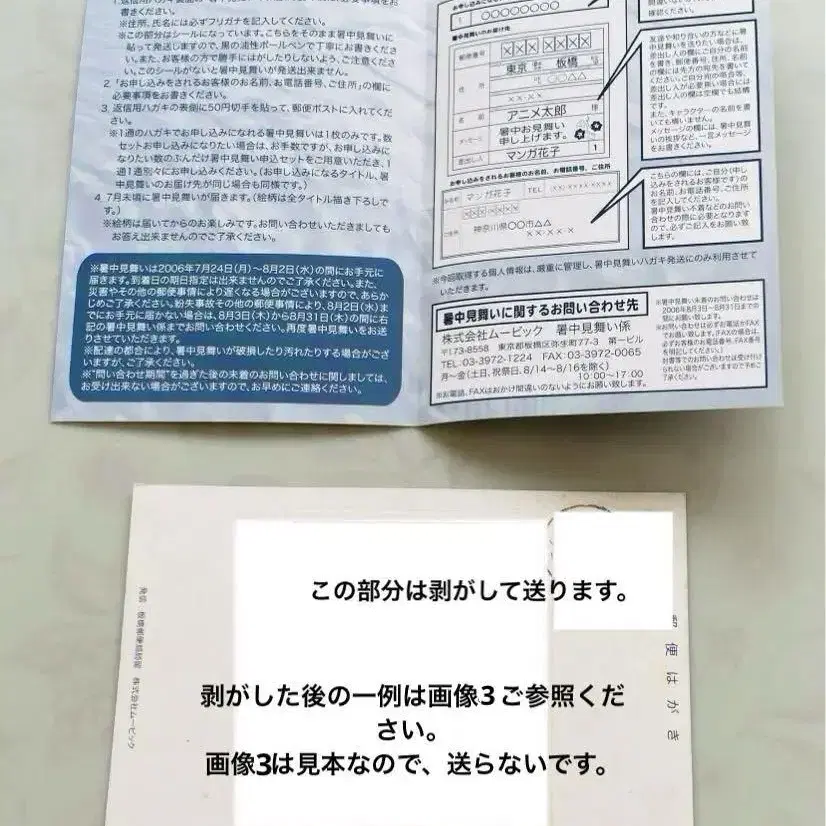 書きください。
※住所、氏名には必ずフリガナを記入してください。
※この部分はシールになっています。こちらをそのまま暑中見舞いに
貼って発送しますので、黒の油性ボールペンで丁寧にお書きくださ
い。また、お客様の方で勝手にはがしたりしないよう、ご注意くださ
い。このシールがないと暑中見舞いが発送出来ません。
2.「お申し込みをされるお客様のお名前、お電話番号、ご住所」の欄に
必要事項をお書きください。
3. 返信用ハガキの表側に50円切手を貼って、郵便ポストに入れてく
ださい。
※1通のハガキでお申し込みになれる暑中見舞いは1枚のみです。数
セットお申し込みになりたい場合は、お手数ですが、お申し込みに
なりたい数のぶんだけ暑中見舞い申込セットをご用意いただき、1
通1通別々にお申し込みください。(お申し込みになるタイトル、暑
中見舞いのお届け先が同じ場合も同様です。)
4. 7月末頃に暑中見舞いが届きます。(絵柄は全タイトル描き下ろしで
す。)
※絵柄は届いてからのお楽しみです。お問い合わせいただきましても
お答え出来ませんのでご了承ください。
※暑中見舞いは2006年7月24日(月)~8月2日(水)の間にお手元に
届きます。到着日の期日指定は出来ませんのでご了承ください。また、
災害やその他の郵便事情により遅くなる場合がございますので、あらか
じめご了承ください。紛失事故その他の郵便事情により、8月2日(水)ま
でにお手元に届かない場合は、8月3日(木)から8月31日(木)の間に右
記の暑中見舞い係までお問い合わせください。再度暑中見舞いをお送
りさせていただきます。
※配達の都合により、暑中見舞いが破損したり汚れたりする場合がござ
いますが、ご了承ください。
※"問い合わせ期間"を過ぎた後の未着のお問い合わせに関しましては、
お受け出来ない場合がございますので、お早めにご連絡ください。
1 ○○○○○○○○
暑中見舞いのお届け先
郵便番号
×××××××
東京 板橋
住所
○△△
××-××
名前
アニメ太郎 様
メッセージ
暑中お見舞い
申し上げます。
差出人
マンガ花子 1
お申し込みをされるお客様のお名前、お電話番号、ご住所
マンガ花子 TEL
×××××××
神奈川県○○市△△
××-××-×
確認ください。
友達や知り合いの方などに暑
中見舞いを送りたい場合は、
差出人の欄にご自分の名前
を書き、郵便番号、住所、名前
の欄には先方の宛先を書いて
ください。ご自分宛の場合等、
差出人が必要無い場合には
差出人の欄は空欄でも結構
です。
また、キャラクターの名前を書
いても構いません。
メッセージの欄には、暑中見舞
いの挨拶など、一言メッセージ
をお書きください。
こちらの欄には、ご自分(申し
込みをされるお客様)のお名
前、お電話番号、ご住所
を記入してください。
暑中見舞い不着などのお問い
合わせの際に必要となります
ので、必ずご記入をお願い致
します。
※今回取得する個人情報は、厳重に管理し、暑中見舞いハガキ発送にのみ利用させて
いただきます。
暑中見舞いに関するお問い合わせ先
株式会社ムービック 暑中見舞い係
〒173-8558 東京都板橋区弥生町77-3 第一ビル
TEL:03-3972-1224 FAX:03-3972-0065
月~金(土日、祝祭日、8/14~8/16を除く)
10:00~17:00
※お電話、FAXはおかけ間違いのないようにお願い致します。
※暑中見舞い未着のお問い合わせは
2006年8月3日~8月31日までの
間にお願い致します。
※お問い合わせは必ずお電話かFAX
でお願い致します。(FAXの場合は、
必ずお客様のお名前、ご住所、
お電話番号、FAX番号
を明記してください。)
封書等でのお問い合わせは受け付け
られない場合がございますので予めご
了承ください。
この部分は剥がして送ります。
剥がした後の一例は画像3ご参照くだ
さい。
画像3は見本なので、送らないです。
郵便はがき
発信 板橋郵便局私書箱 株式会社ムービック